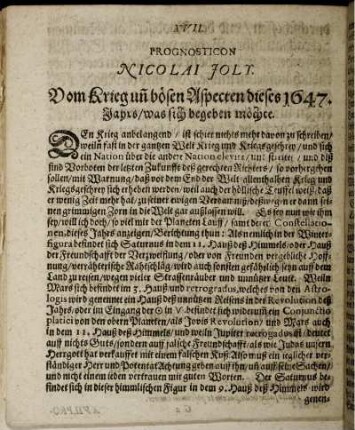 XVII.
PROGNOSTICON
NICOLAI JOLY.
Vom Krieg uñ bösen Aspecten dieses 1647.
Jahrs/was sich begeben möchte.
DEn Krieg anbelangend / ist schier nichts mehr davon zu schreiben/
weiln fast in der gantzen Welt Krieg und Kriegsgeschrey/ und sich
ein Nation über die andere Nation und streitet/ und diß
sind Vorboten der letzten Zukunfft deß gerechten Richters / so vorhergehen
sollen/ mit Warnung/ daß vor dem End der Welt allenthalben Krieg und
Kriegsgeschrey sich erheben werden/ weil auch der höllische Teuffel weiß/ daß
er wenig Zeit mehr hat/ zu seiner ewigen Verdamnuß/ deßwegen er dann sei-
nen grimmigen Zorn in der Welt gar außlassen will. Es sey nun wie ihm
sey/ will ich doch/ so viel mir der Planeten Lauff / samt deren Constellacio-
nen/ dieses Jahrs anzeigen/ Berichtung thun: Als nemlich in der Winter-
figura befindet sich Saturnus in dem 11. Hauß deß Himmels/ oder Hauß
der Freundschafft der Verzweyfflung/ oder von Freunden vergebliche Hoff-
nung/ verrähterische Rahtschläg/ wird auch sonsten gefährlich seyn auff dem
Land zu reisen/ wegen vieler Strassenräuber und unnützer Leut. Weiln
Mars sich befindet im 3. Hauß und retrogradus, welches von den Astro-
logis wird genennet ein Hauß deß unnützen Reisens in der Revolution deß
Jahrs/ oder im Eingang der ☉ in ♈. befindet sich wiederum ein Conjunctio
platici von den obern Planeten/ als Jovis Revolution/ und Mars auch
in dem 11. Hauß deß Himmels/ und weiln Jupiter retrogradus ist/ deutet
auff nichts Guts/ sondern auff falsche Freundschafft/ als wie Judas unsern
Herrgott hat verkaufft mit einem falschen Kuß. Also muß ein jeglicher ver-
ständiger Herr und Potentat Achtung geben auff ihn/ uñ auff seine Sachen/
und nicht einem jeden vertrauen mit guten Worten. Der Saturnus be-
findet sich in dieser himmlischen Figur in dem 9. Hauß deß Himmels wird
genen-